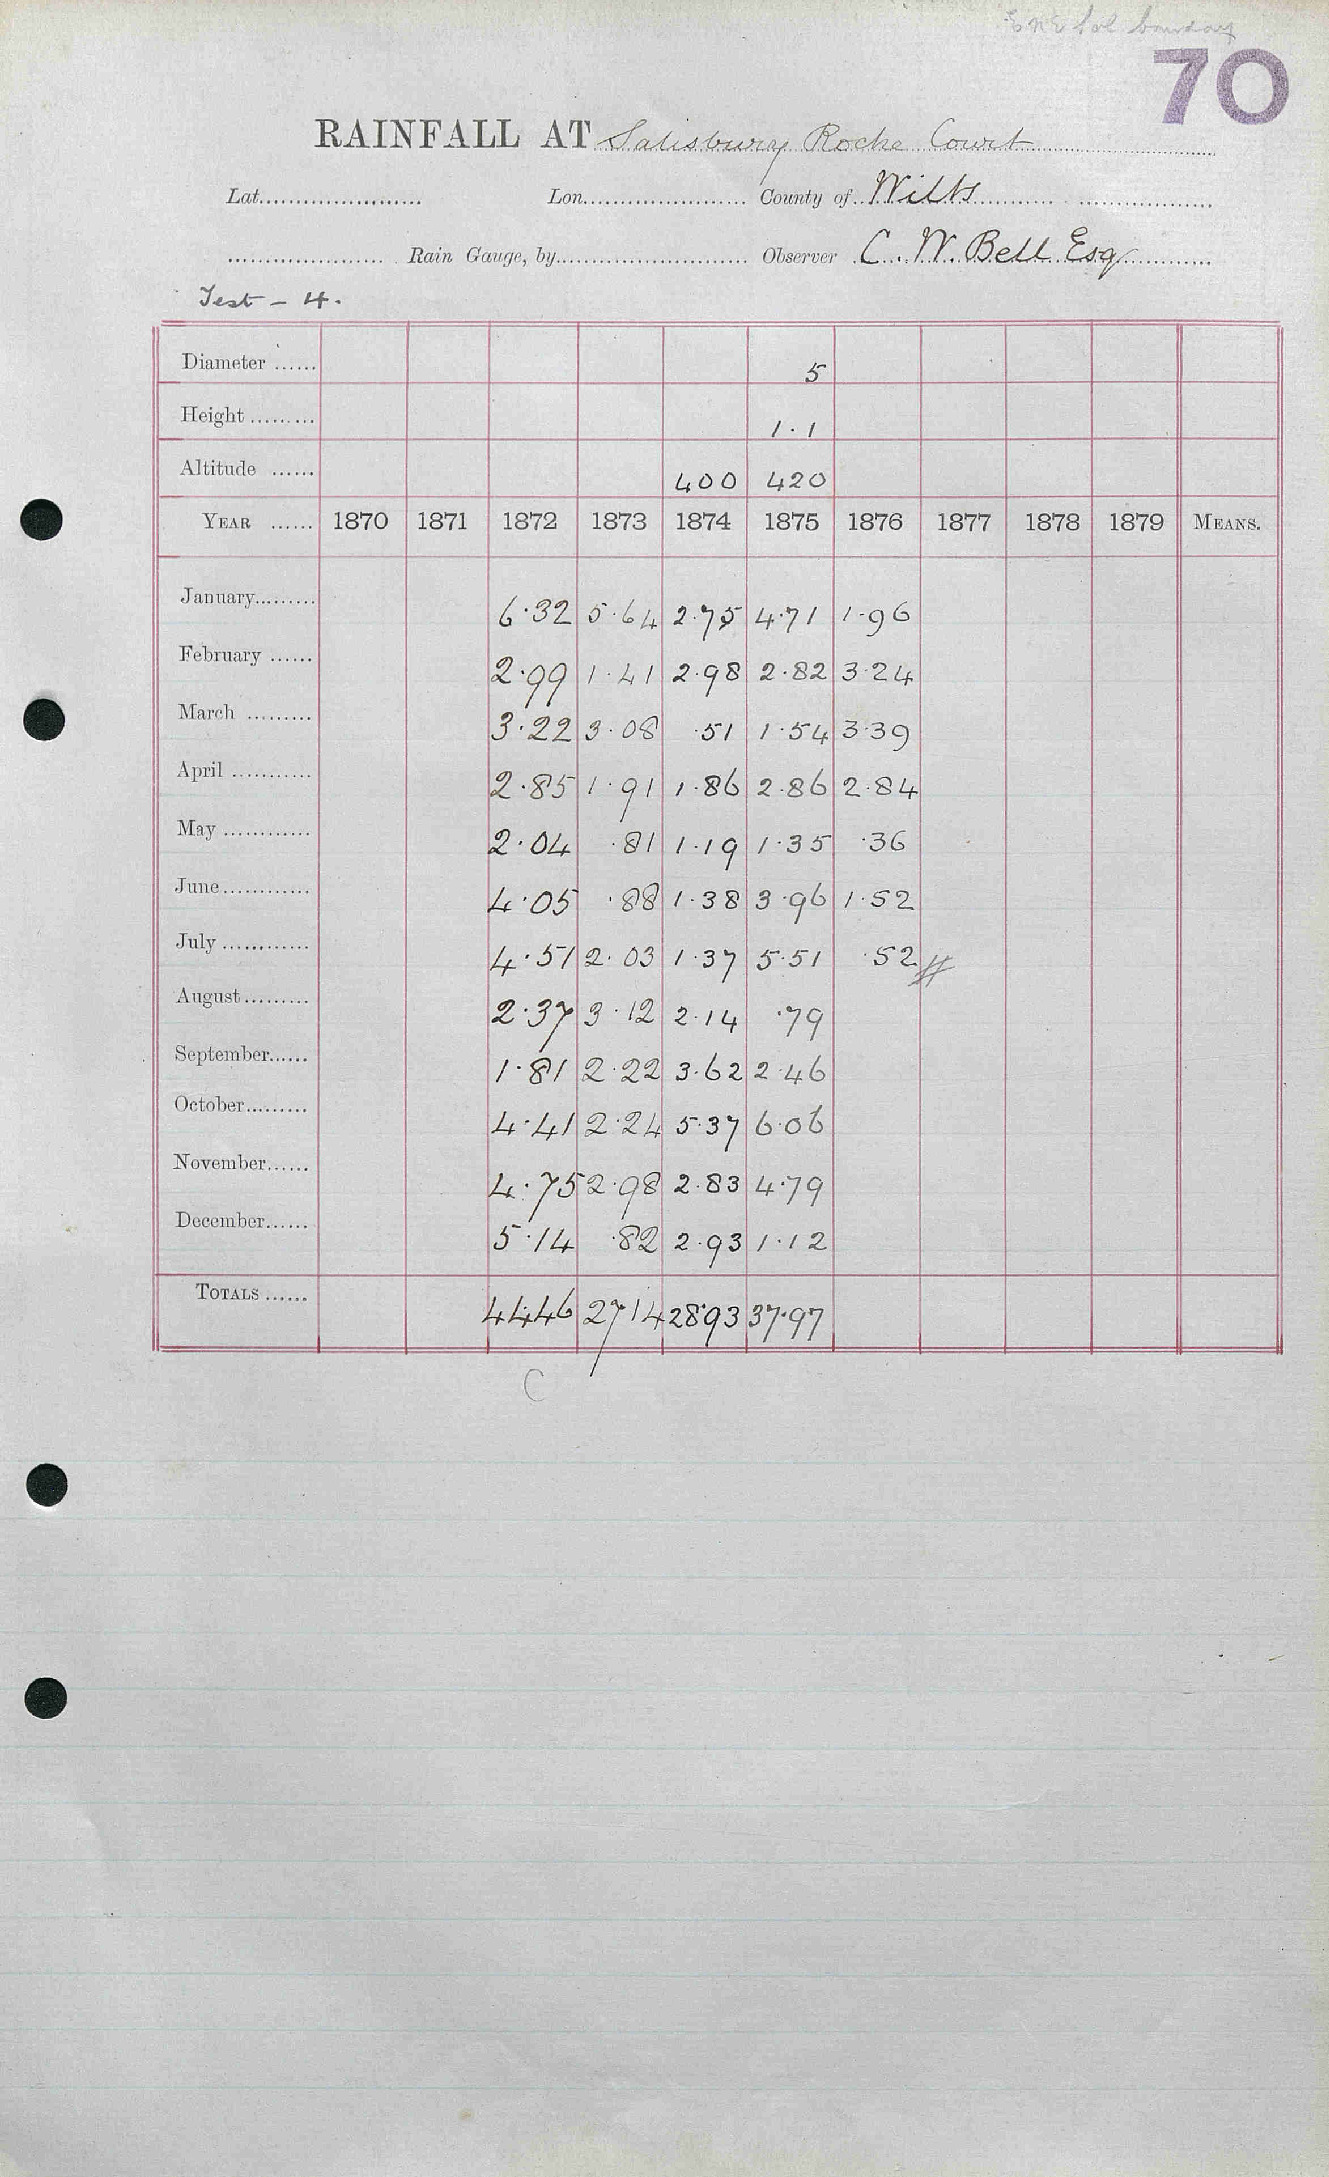 70
RAINFALL AT Salisbury Roche Court
Lat. Lon. County of Wilts
Rain Gauge, by Observer C. W. Bell Esq
Test - 4.
Diameter ...... 5
Height ......... 1.1
Altitude ...... 400 420
YEAR ...... 1870 1871 1872 1873 1874 1875 1876 1877 1878 1879 MEANS.
January......... 6.32 5.64 2.75 4.71 1.96
February ...... 2.99 1.41 2.98 2.82 3.24
March ......... 3.22 3.08 .51 1.54 3.39
April ........... 2.85 1.91 1.86 2.86 2.84
May ............ 2.04 .81 1.19 1.35 .36
June............ 4.05 .88 1.38 3.96 1.52
July ............ 4.51 2.03 1.37 5.51 .52 //
August......... 2.37 3.12 2.14 .79
September...... 1.81 2.22 3.62 2.46
October......... 4.41 2.24 5.37 6.06
November...... 4.75 2.98 2.83 4.79
December...... 5.14 .82 2.93 1.12
TOTALS ...... 44.46 27.14 28.93 37.97
C